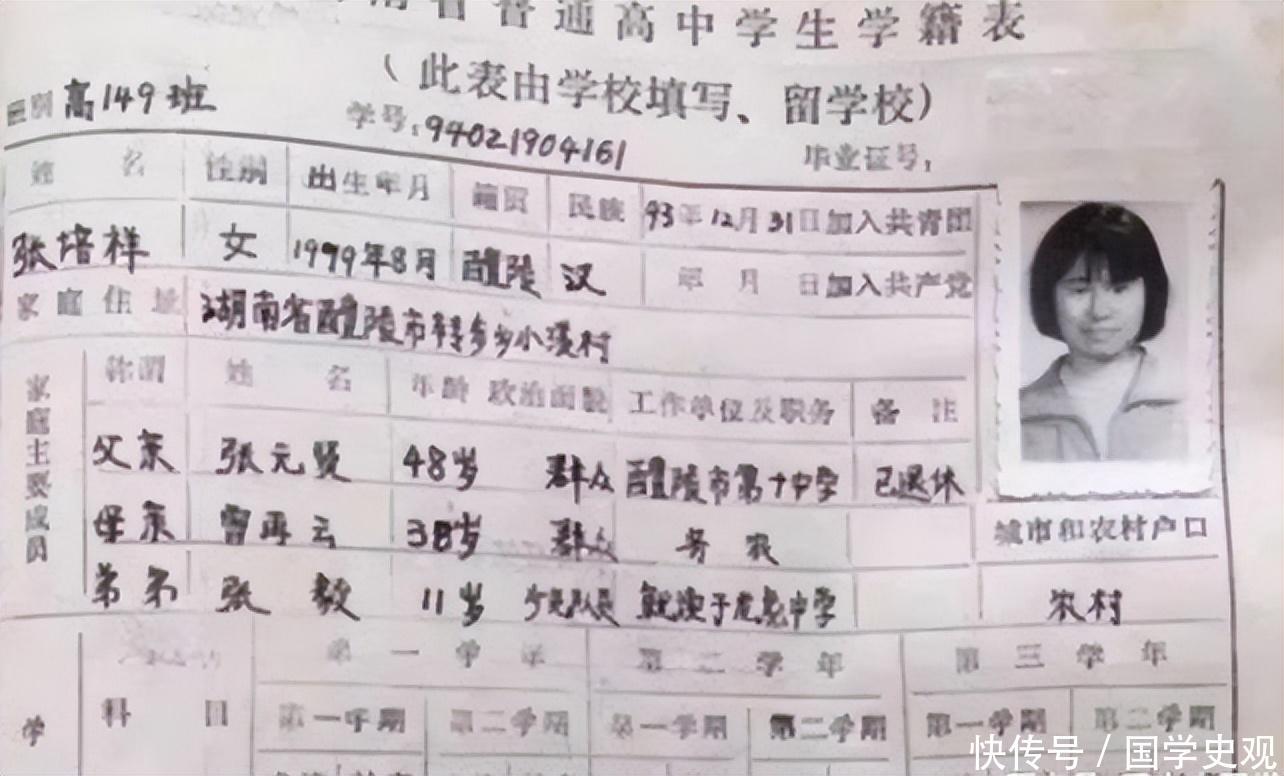 普通高中学生学籍表
(此表由学校填写、留学校)
别 高149班 学号:94021904161 毕业证号:
姓 名 性别 出生年月 籍贯 民族 93年12月31日加入共青团
张培祥 女 1979年8月 醴陵 汉 年 月 日加入共产党
家庭住址 湖南省醴陵市转步乡小溪村
家庭主要成员 称谓 姓 名 年龄 政治面貌 工作单位及职务 备 注
父亲 张元贤 48岁 群众 醴陵市第十中学 已退休
母亲 曾再云 38岁 群众 务农 城市和农村户口
弟弟 张毅 11岁 少先队员 就读于 中学 农村
学 科 目 第一学年 第二学年 第三学年
第一学期 第二学期 第一学期 第二学期 第一学期 第二学期
快传号 / 国学史观